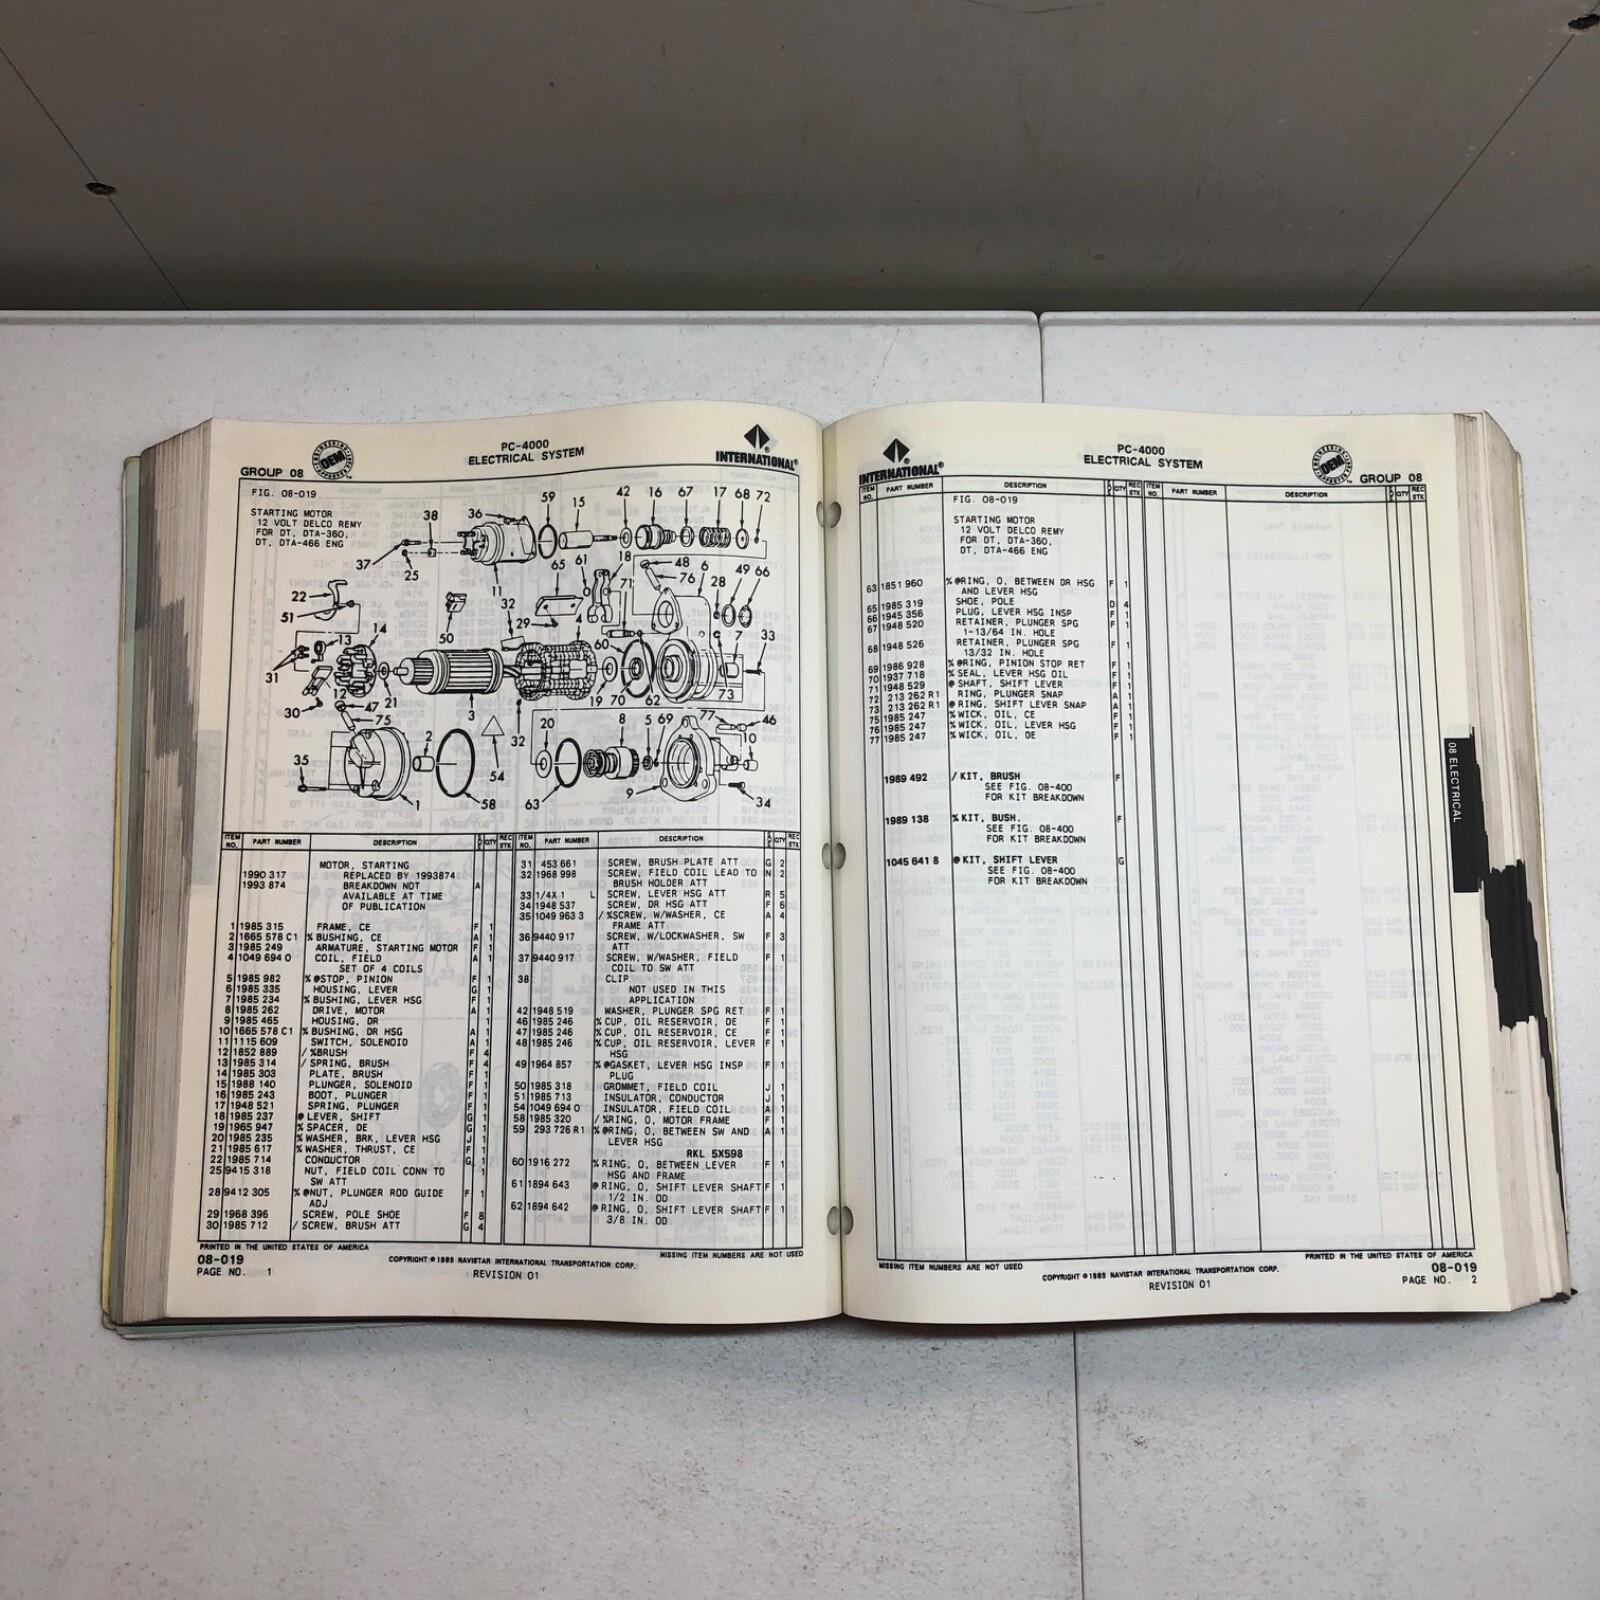 GROUP 08
OEM
PC-4000
ELECTRICAL SYSTEM
INTERNATIONAL®
FIG. 08-019
STARTING MOTOR
12 VOLT DELCO REMY
FOR DT, DTA-360,
DT, DTA-466 ENG
59 15 42 16 67 17 68 72
36 38 37 25 11 65 61 18 71 48 76 6 28 49 66
22 51 13 14 50 32 29 4 60 7 33
31 12 47 21 75 3 19 70 62 73
30 2 54 32 20 8 5 69 77 46 10
35 1 58 63 9 34
ITEM NO. PART NUMBER DESCRIPTION QTY REC STK
MOTOR, STARTING
1990 317 REPLACED BY 1993874
1993 874 BREAKDOWN NOT A
AVAILABLE AT TIME
OF PUBLICATION
1 1985 315 FRAME, CE F 1
2 1665 578 C1 % BUSHING, CE A 1
3 1985 249 ARMATURE, STARTING MOTOR F 1
4 1049 694 0 COIL, FIELD A 1
SET OF 4 COILS
5 1985 982 % @STOP, PINION F 1
6 1985 335 HOUSING, LEVER G 1
7 1985 234 % BUSHING, LEVER HSG F 1
8 1985 262 DRIVE, MOTOR A 1
9 1985 465 HOUSING, DR 1
10 1665 578 C1 % BUSHING, DR HSG A 1
11 1115 609 SWITCH, SOLENOID A 1
12 1852 889 / %BRUSH F 4
13 1985 314 / SPRING, BRUSH F 4
14 1985 303 PLATE, BRUSH F 1
15 1988 140 PLUNGER, SOLENOID F 1
16 1985 243 BOOT, PLUNGER F 1
17 1948 521 SPRING, PLUNGER F 1
18 1985 237 @ LEVER, SHIFT G 1
19 1965 947 % SPACER, DE G 1
20 1985 235 % WASHER, BRK, LEVER HSG J 1
21 1985 617 % WASHER, THRUST, CE F 1
22 1985 714 CONDUCTOR G 1
25 9415 318 NUT, FIELD COIL CONN TO 1
SW ATT
28 9412 305 % @NUT, PLUNGER ROD GUIDE F 1
ADJ
29 1968 396 SCREW, POLE SHOE F 8
30 1985 712 / SCREW, BRUSH ATT G 4
ITEM NO. PART NUMBER DESCRIPTION QTY REC STK
31 453 661 SCREW, BRUSH PLATE ATT G 2
32 1968 998 SCREW, FIELD COIL LEAD TO N 2
BRUSH HOLDER ATT
33 1/4X 1 L SCREW, LEVER HSG ATT R 5
34 1948 537 SCREW, DR HSG ATT F 6
35 1049 963 3 / %SCREW, W/WASHER, CE A 4
FRAME ATT
36 9440 917 SCREW, W/LOCKWASHER, SW F 3
ATT
37 9440 917 SCREW, W/WASHER, FIELD F 1
COIL TO SW ATT
38 CLIP
NOT USED IN THIS
APPLICATION
42 1948 519 WASHER, PLUNGER SPG RET F 1
46 1985 246 % CUP, OIL RESERVOIR, DE F 1
47 1985 246 % CUP, OIL RESERVOIR, CE F 1
48 1985 246 % CUP, OIL RESERVOIR, LEVER F 1
HSG
49 1964 857 % @GASKET, LEVER HSG INSP F 1
PLUG
50 1985 318 GROMMET, FIELD COIL J 1
51 1985 713 INSULATOR, CONDUCTOR G 1
54 1049 694 0 INSULATOR, FIELD COIL A 1
58 1985 320 / %RING, O, MOTOR FRAME F 1
59 293 726 R1 % @RING, O, BETWEEN SW AND A 1
LEVER HSG
RKL 5X598
60 1916 272 % RING, O, BETWEEN LEVER F 1
HSG AND FRAME
61 1894 643 @ RING, O, SHIFT LEVER SHAFT F 1
1/2 IN. OD
62 1894 642 @ RING, O, SHIFT LEVER SHAFT F 1
3/8 IN. OD
PRINTED IN THE UNITED STATES OF AMERICA
MISSING ITEM NUMBERS ARE NOT USED
08-019
PAGE NO. 1
COPYRIGHT © 1989 NAVISTAR INTERNATIONAL TRANSPORTATION CORP.
REVISION 01
INTERNATIONAL®
PC-4000
ELECTRICAL SYSTEM
OEM
GROUP 08
ITEM NO. PART NUMBER DESCRIPTION QTY REC STK ITEM NO. PART NUMBER DESCRIPTION QTY REC STK
FIG. 08-019
STARTING MOTOR
12 VOLT DELCO REMY
FOR DT, DTA-360,
DT, DTA-466 ENG
63 1851 960 % @RING, O, BETWEEN DR HSG F 1
AND LEVER HSG
65 1985 319 SHOE, POLE D 4
66 1945 356 PLUG, LEVER HSG INSP F 1
67 1948 520 RETAINER, PLUNGER SPG F 1
1-13/64 IN. HOLE
68 1948 526 RETAINER, PLUNGER SPG F 1
13/32 IN. HOLE
69 1986 928 % @RING, PINION STOP RET F 1
70 1937 718 % SEAL, LEVER HSG OIL F 1
71 1948 529 @ SHAFT, SHIFT LEVER F 1
72 213 262 R1 RING, PLUNGER SNAP A 1
73 213 262 R1 @ RING, SHIFT LEVER SNAP A 1
75 1985 247 % WICK, OIL, CE F 1
76 1985 247 % WICK, OIL, LEVER HSG F 1
77 1985 247 % WICK, OIL, DE F 1
1989 492 / KIT, BRUSH F
SEE FIG. 08-400
FOR KIT BREAKDOWN
1989 138 % KIT, BUSH. F
SEE FIG. 08-400
FOR KIT BREAKDOWN
1045 641 8 @ KIT, SHIFT LEVER G
SEE FIG. 08-400
FOR KIT BREAKDOWN
08 ELECTRICAL
MISSING ITEM NUMBERS ARE NOT USED
PRINTED IN THE UNITED STATES OF AMERICA
COPYRIGHT © 1989 NAVISTAR INTERNATIONAL TRANSPORTATION CORP.
REVISION 01
08-019
PAGE NO. 2